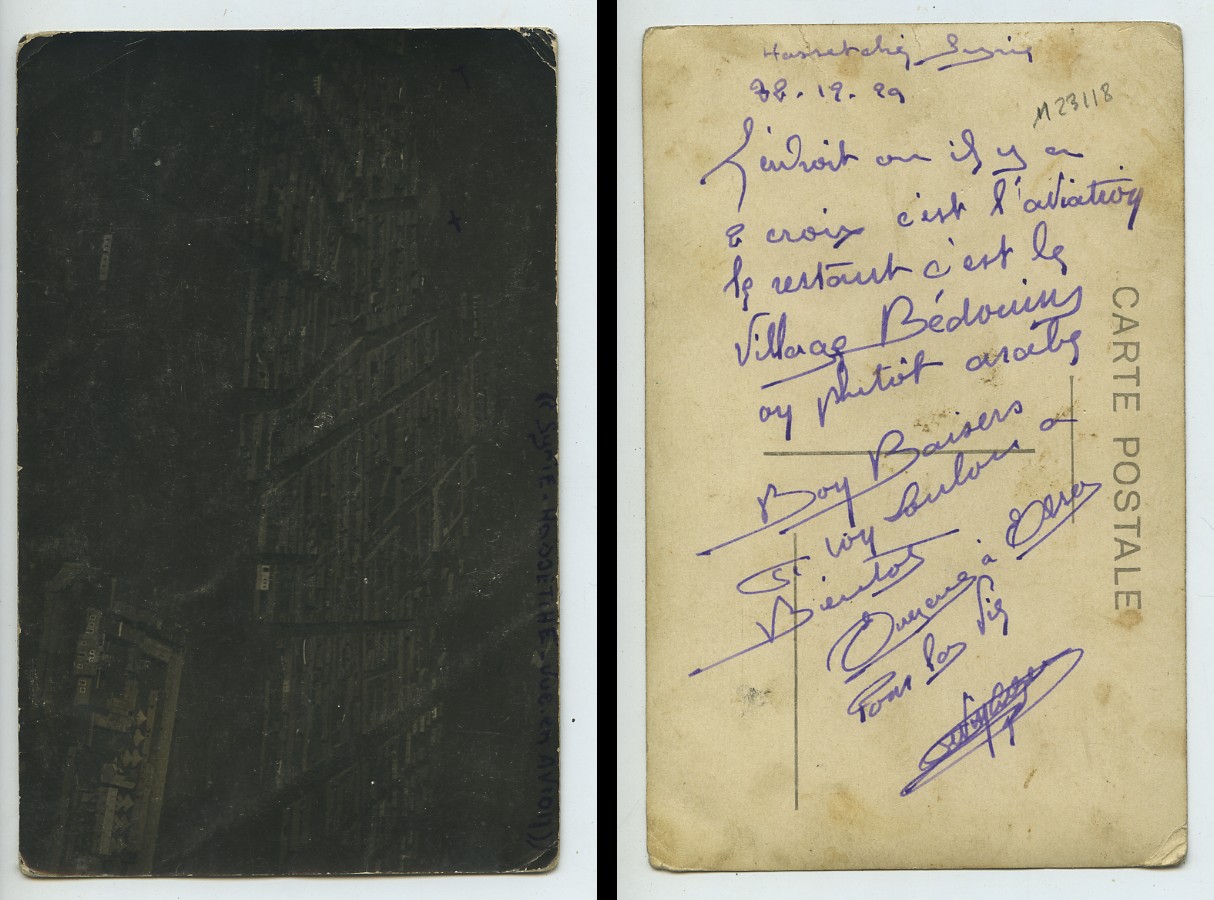 (( Syrie - HASSETCHE - Vue en AVION ))
Hassetché Syrie
M23118
L'endroit ou il y a
2 croix c'est l'aviation
le restant c'est le
Village Bédouins
ou plutôt arabe
Bon Baisers
si toy a
Bientot
à
Pour la Vie
CARTE POSTALE